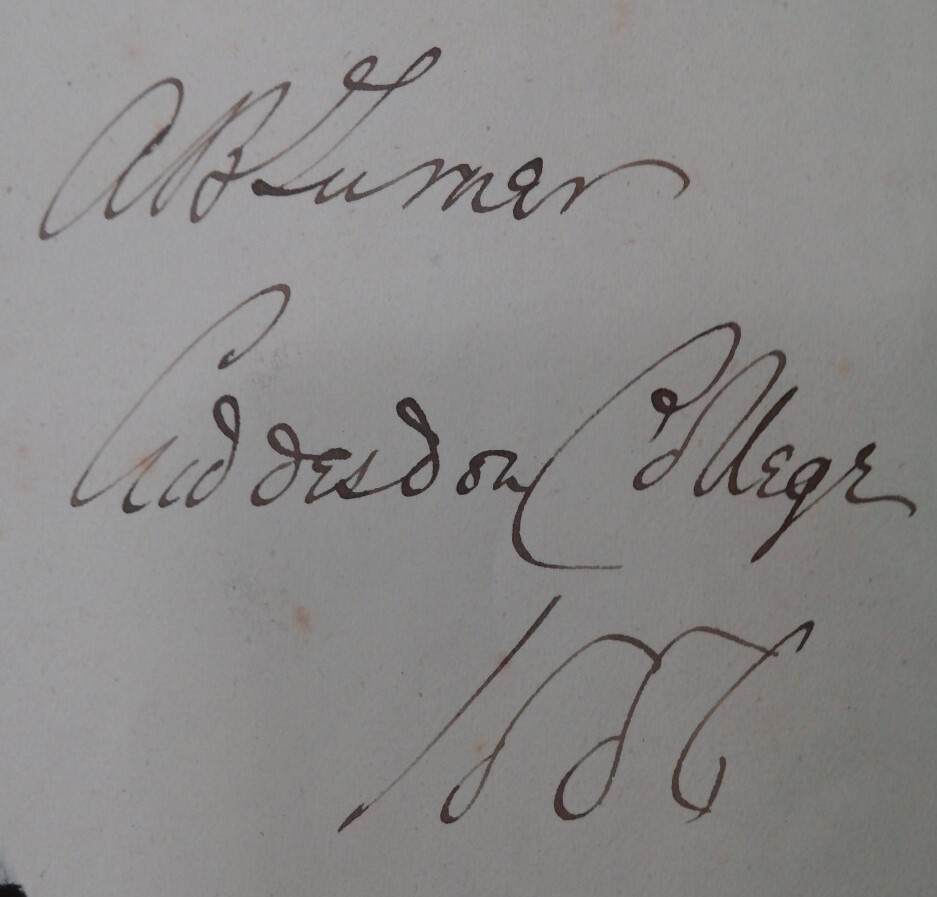 A B Turner
Cuddesdon College
1886